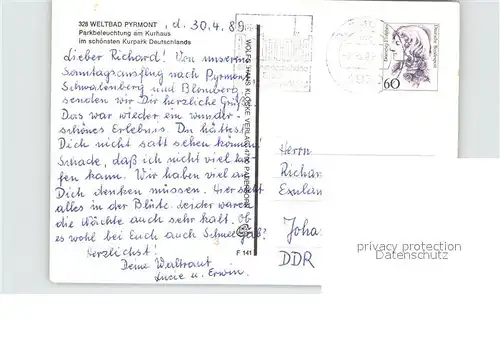 328 WELTBAD PYRMONT, d. 30.4.89
Parkbeleuchtung am Kurhaus
im schönsten Kurpark Deutschlands
Lieber Richard! Von unserm
Sonntagsausflug nach Pyrmont,
Schwalenberg und Blomberg
senden wir Dir herzliche Grüße.
Das war wieder ein wunder-
schönes Erlebnis. Du hättest
Dich nicht satt sehen können!
Schade, daß ich nicht viel lau-
fen kann. Wir haben viel an
Dich denken müssen. Hier steht
alles in der Blüte. Leider waren
die Nächte auch sehr kalt. Ob
es wohl bei Euch auch Schnee gab?
Herzlichst!
Deine Waltraut
Lucie u. Erwin.
F 141
WOLFGANG HANS KLOCKE VERLAG 4790 PADERBORN
Deutsche Bundespost
60
Herrn
Richar
Exulan
Joha
DDR
privacy protection
oldthing.com